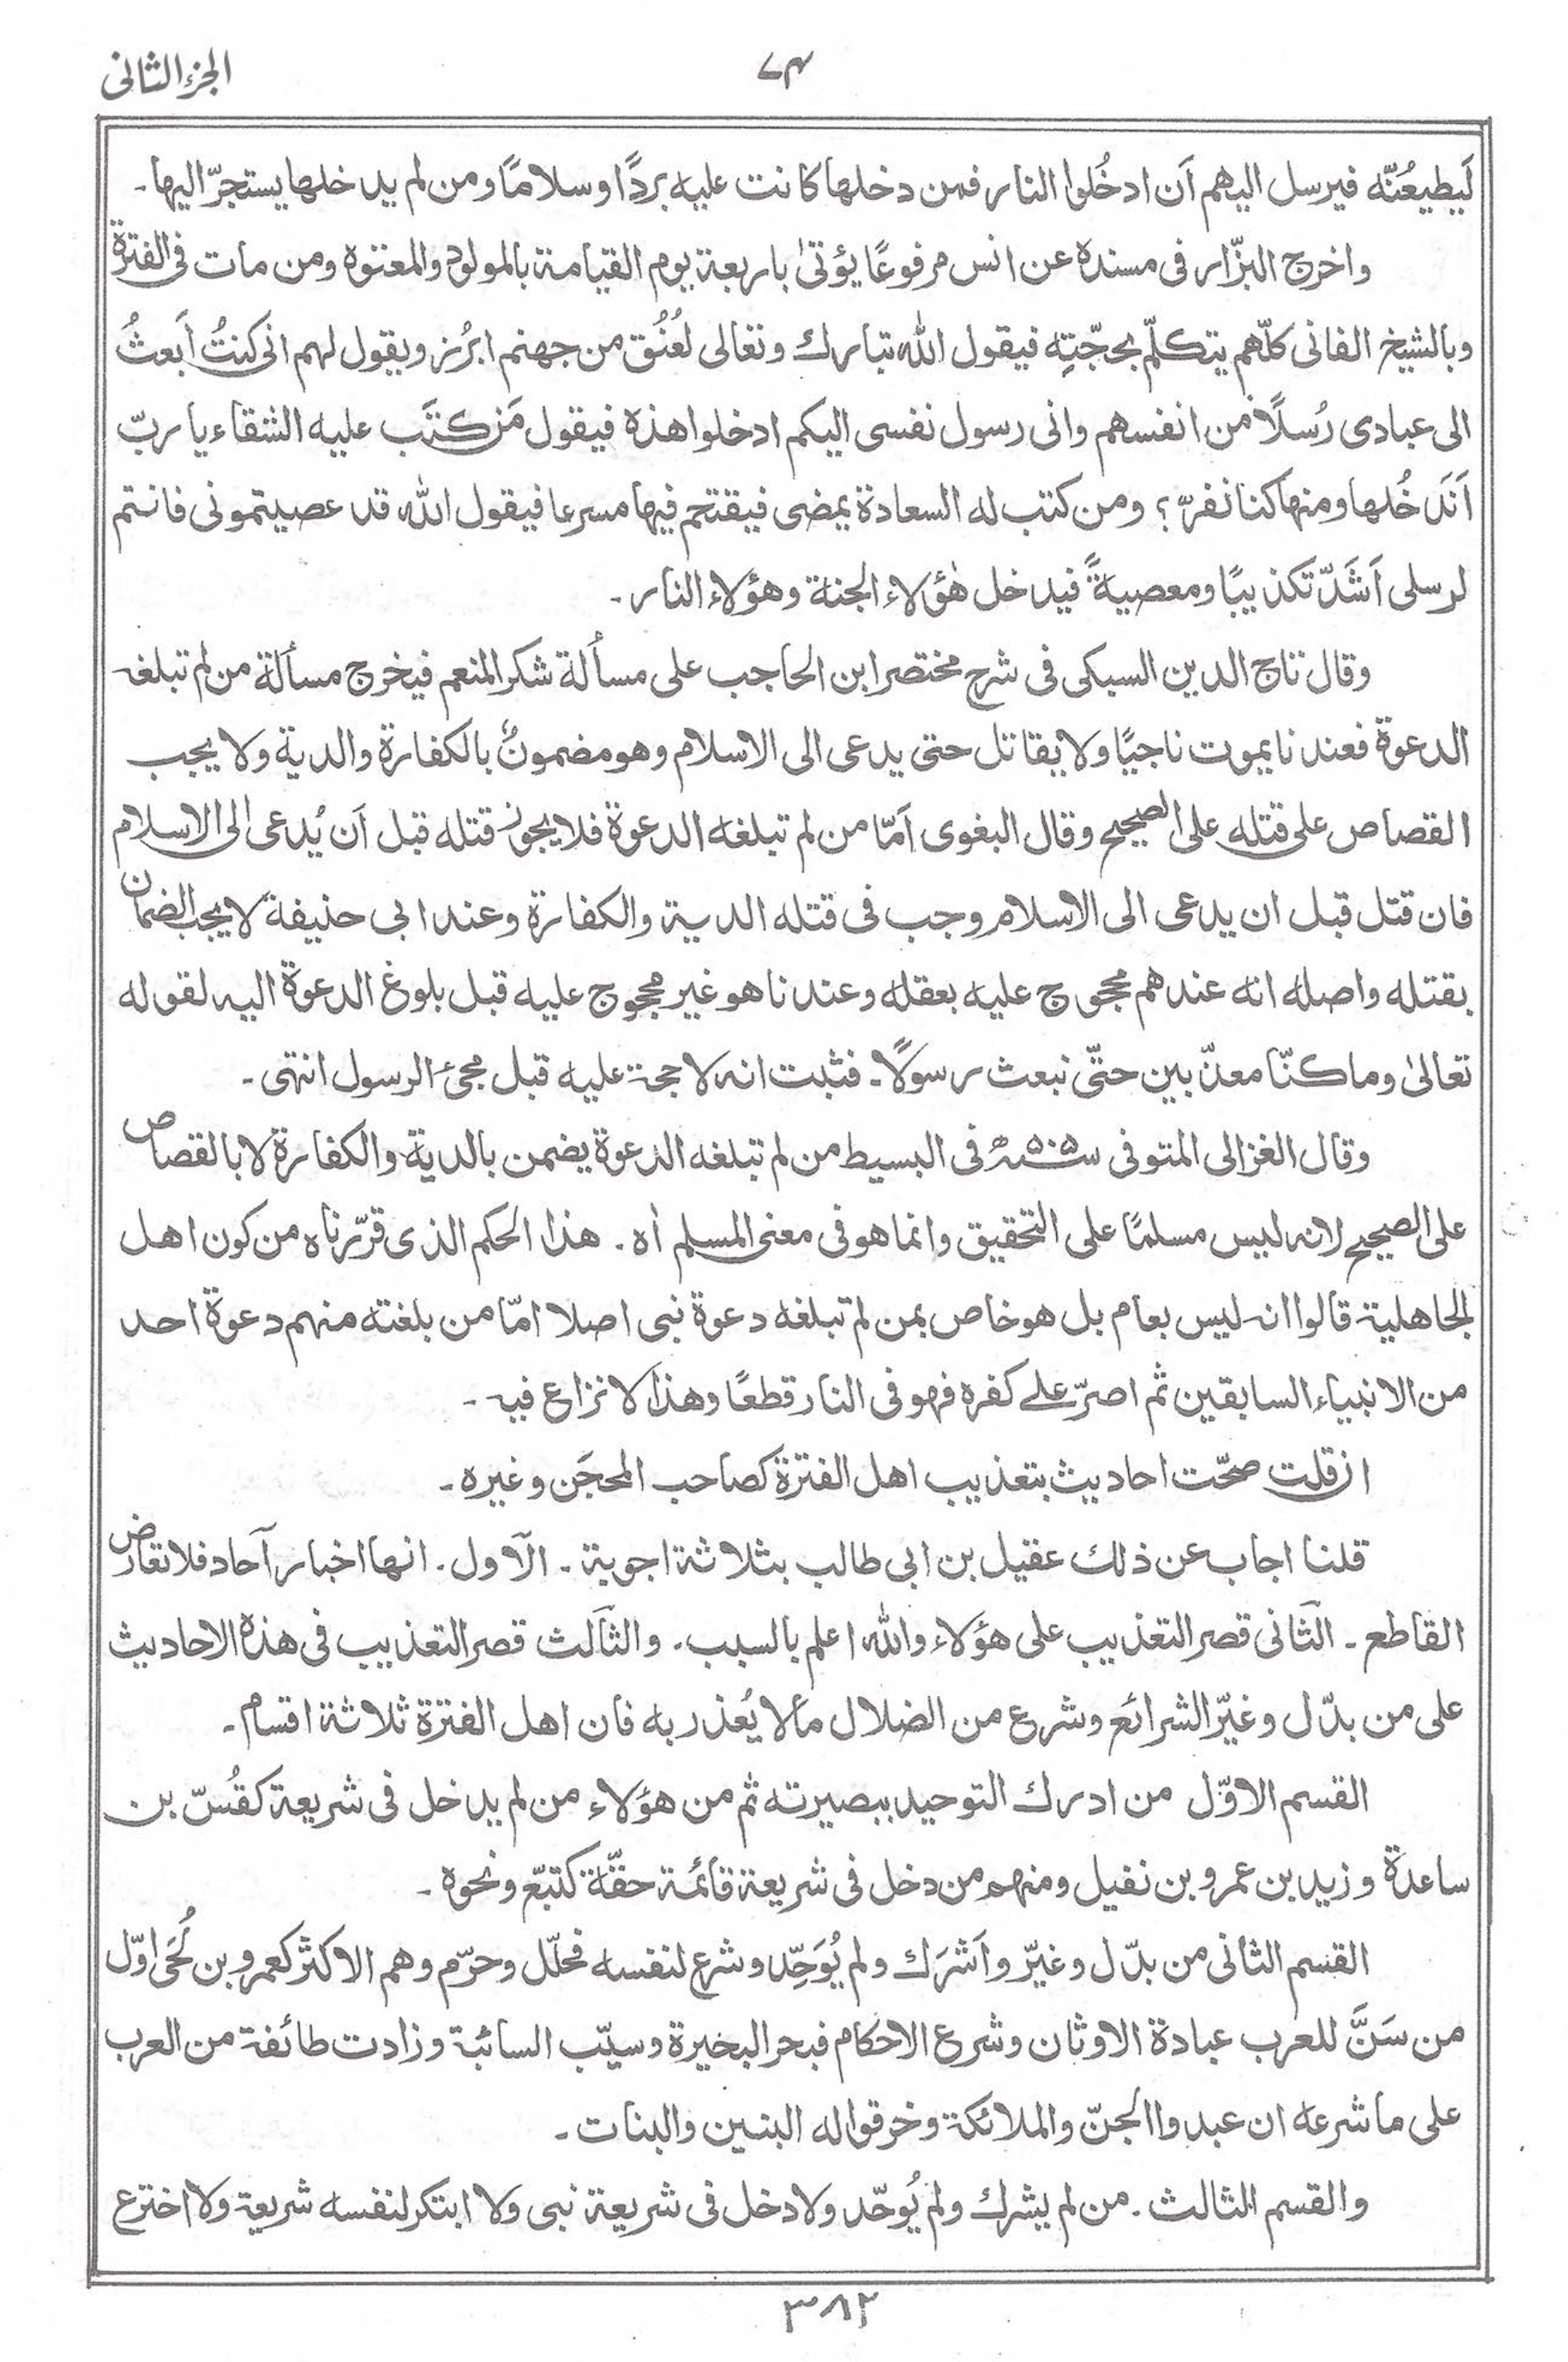 الجزء الثانی
۷۴
لَیطیعُنّه فیرسل الیهم اَن ادخُلوا النار فمن دخلها کانت علیه بردًا وسلامًا ومن لم یدخلها یستجرّ الیها۔
واخرج البزّار فی مسنده عن انس مرفوعًا یؤتیٰ باربعة یوم القیامة بالمولود والمعتوه ومن مات فی الفترة
وبالشیخ الفانی کلّهم یتکلّم بحجّتِه فیقول الله تبارك وتعالی لعُنُق من جهنم ابرُز ویقول لهم انی کنتُ اَبعثُ
الی عبادی رُسلًا من انفسهم وانی رسول نفسی الیکم ادخلوا هذه فیقول مَن کتَب علیه الشقاء یا ربّ
اَنَدخُلها ومنها کنا نفرّ؟ ومن کتب له السعادة یمضی فیقتحم فیها مسرعا فیقول الله قد عصیتمونی فانتم
لرسلی اَشَدّ تکذیبًا ومعصیةً فیدخل هٰؤلاء الجنة وهؤلاء النار۔
وقال تاج الدین السبکی فی شرح مختصر ابن الحاجب علی مسألة شکر المنعم فیخرج مسألة من لم تبلغه
الدعوة فعندنا یموت ناجیًا ولا یقاتل حتی یدعی الی الاسلام وهو مضمونٌ بالکفارة والدیة ولا یجب
القصاص علی قتله علی الصحیح وقال البغوی اَمّا من لم تبلغه الدعوة فلا یجوز قتله قبل اَن یُدعی الی الاسلام
فان قتل قبل ان یدعی الی الاسلام وجب فی قتله الدیة والکفارة وعند ابی حنیفة لا یجب الضمان
بقتله واصله انه عندهم محجوج علیه بعقله وعندنا هو غیر محجوج علیه قبل بلوغ الدعوة الیه لقوله
تعالیٰ وما کنّا معذّبین حتّی نبعث رسولًا۔ فثبت انه لا حجة علیه قبل مجئ الرسول انتهی۔
وقال الغزالی المتوفی سنه ۵۰۵ھ فی البسیط من لم تبلغه الدعوة یضمن بالدیة والکفارة لا بالقصاص
علی الصحیح لانه لیس مسلمًا علی التحقیق وانما هو فی معنی المسلم اه۔ هذا الحکم الذی قرّرناه من کون اهل
الجاهلیة قالوا انه لیس بعام بل هو خاص بمن لم تبلغه دعوة نبی اصلا امّا من بلغته منهم دعوة احد
من الانبیاء السابقین ثم اصرّ علے کفره فهو فی النار قطعًا وهذا لا نزاع فیه۔
ان قلت صحّت احادیث بتعذیب اهل الفترة کصاحب المحجَن وغیره۔
قلنا اجاب عن ذلك عقیل بن ابی طالب بثلاثة اجوبة۔ الاَول۔ انها اخبار آحاد فلا تعارض
القاطع۔ الثّانی قصر التعذیب علی هؤلاء والله اعلم بالسبب۔ والثالث قصر التعذیب فی هذه الاحادیث
علی من بدّل وغیّر الشرائع وشرع من الضلال مالا یُعذر به فان اهل الفترة ثلاثة اقسام۔
القسم الاوّل من ادرك التوحید ببصیرته ثم من هؤلاء من لم یدخل فی شریعة کقُسّ بن
ساعدة وزید بن عمرو بن نفیل ومنهم من دخل فی شریعة قائمة حقّة کتبّع ونحوه۔
القسم الثانی من بدّل وغیّر واَشرَك ولم یُوَحِّد وشرع لنفسه فحلّل وحرّم وهم الاکثر کعمرو بن لُحَی اوّل
من سَنَّ للعرب عبادة الاوثان وشرع الاحکام فبحر البخیرة وسیّب السائبة وزادت طائفة من العرب
علی ما شرعه ان عبدوا الجنّ والملائکة وخرقوا له البنین والبنات۔
والقسم الثالث۔ من لم یشرك ولم یُوحّد ولا دخل فی شریعة نبی ولا ابتکر لنفسه شریعة ولا اخترع
۳۸۲